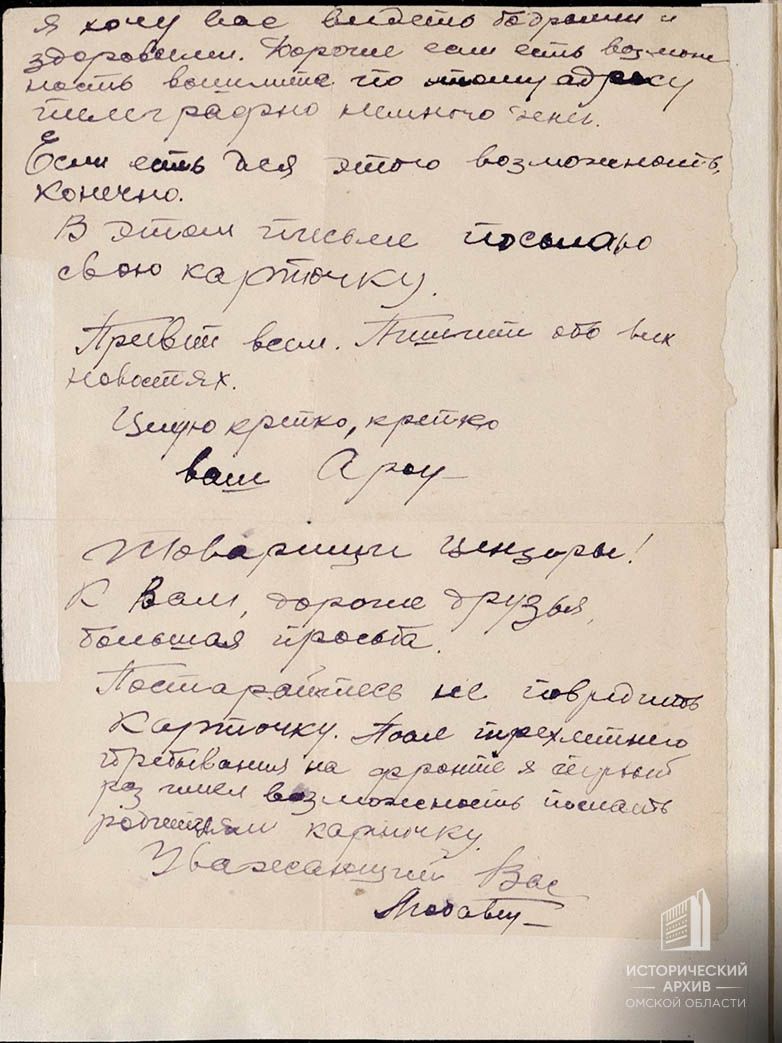 Я хочу вас видеть бодрыми и
здоровыми. Дорогие если есть возмож
ность вышлите по этому адресу
телеграфно немного денег.
Если есть для этого возможность,
конечно.
В этом письме посылаю
свою карточку.
Привет всем. Пишите обо всех
новостях.
Целую крепко, крепко
ваш
Товарищи цензоры!
К Вам, дорогие друзья,
большая просьба.
Постарайтесь не повредить
карточку. После трехлетнего
пребывания на фронте я первый
раз имел возможность послать
родителям карточку.
Уважающий Вас
ИСТОРИЧЕСКИЙ
АРХИВ
ОМСКОЙ ОБЛАСТИ